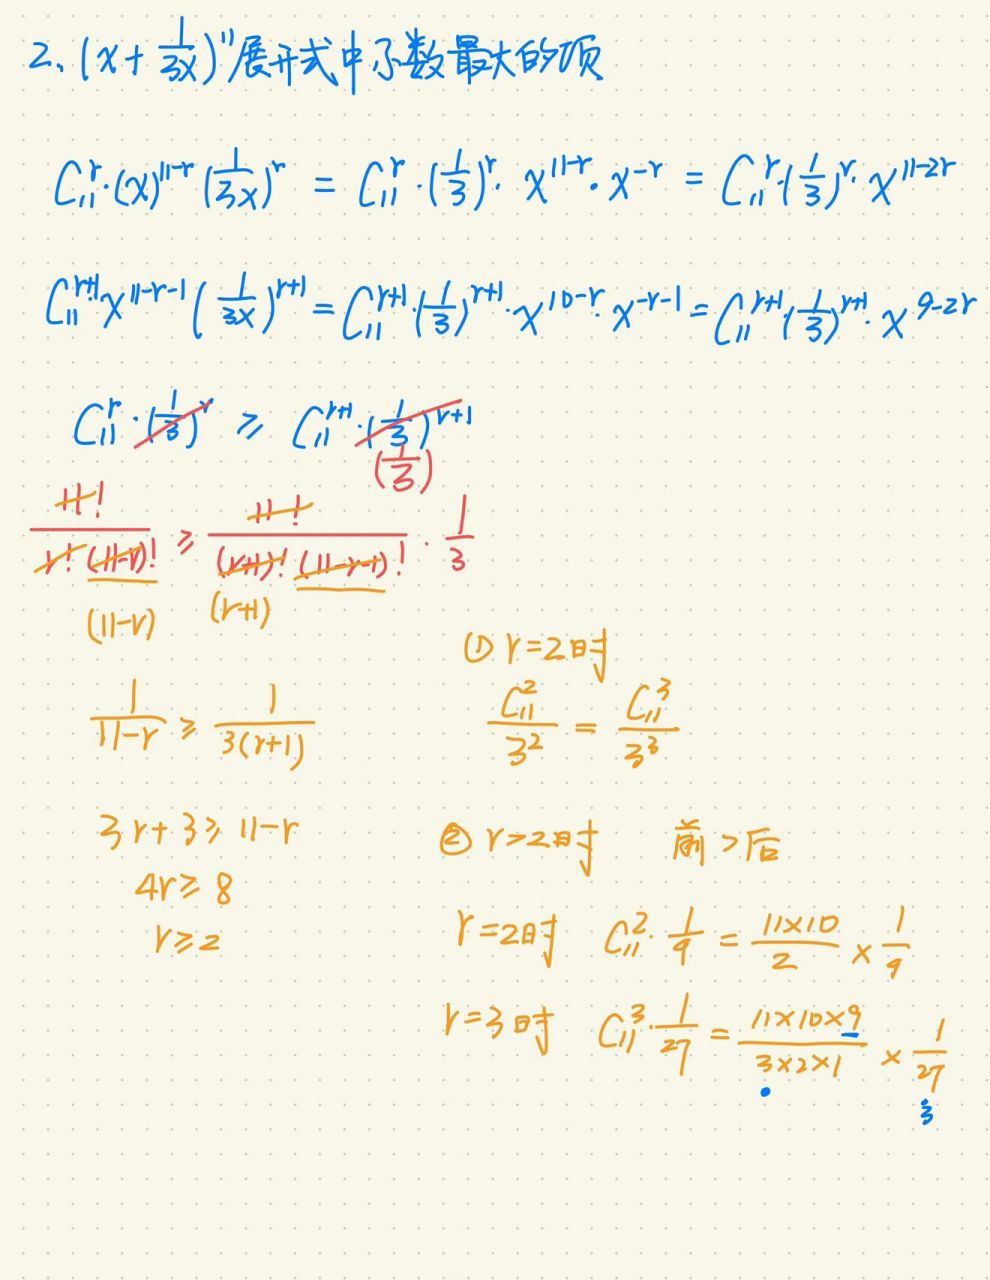 2、(x + 1/3x)^11 展开式中系数最大的项
C₁₁^r·(x)^(11-r) (1/3x)^r = C₁₁^r·(1/3)^r·x^(11-r)·x^(-r) = C₁₁^r·(1/3)^r·x^(11-2r)
C₁₁^(r+1) x^(11-r-1) (1/3x)^(r+1) = C₁₁^(r+1)·(1/3)^(r+1)·x^(10-r)·x^(-r-1) = C₁₁^(r+1)·(1/3)^(r+1)·x^(9-2r)
C₁₁^r·(1/3)^r ≥ C₁₁^(r+1)·(1/3)^(r+1)
(1/3)
11!/r!(11-r)! ≥ 11!/(r+1)!(11-r-1)! · 1/3
(11-r) (r+1)
1/(11-r) ≥ 1/3(r+1)
3r+3 ≥ 11-r
4r ≥ 8
r ≥ 2
① r=2时
C₁₁^2/3^2 = C₁₁^3/3^3
② r>2时 前>后
r=2时 C₁₁^2·1/9 = 11×10/2 × 1/9
r=3时 C₁₁^3·1/27 = 11×10×9/3×2×1 × 1/27
3